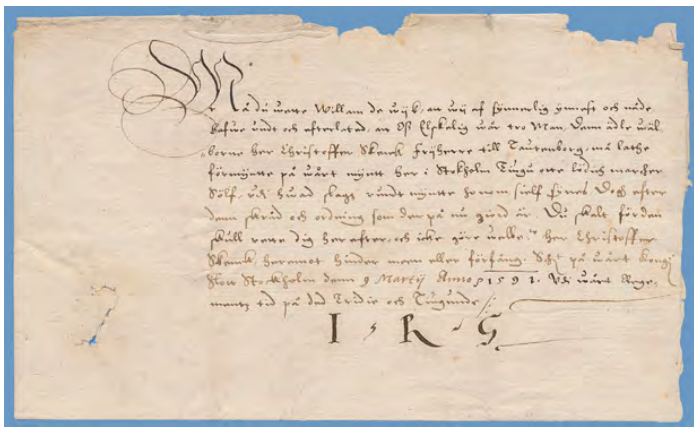 Må du wette Willam de wijk, att wij af synnerlig ynnest och nåde
hafwe undt och efterlatad, att Oss Elskelig wår tro Man, Dann ädle wäl-
borne her Christoffer Skenck fryherre till Tautenborg, må lathe
förmyntte på wårt myntt her i Stokholm Tiugu otte lödich marcher
Sölf, udi hwad slags rundt myntte honom sielf synes. Doch efter
dann skrud och ordning som der på nu giord är. Du skalt fördan
skull rette dig her efter, och icke göre welbe:te her Christoffer
Skenck, heremot hinder meen eller förfång. på wårt Kongz
Slott Stockholm denn 9 Martij Anno 1591. Udi wårt Rege-
mentz tid på dad Tridie och Tiugunde
I R S